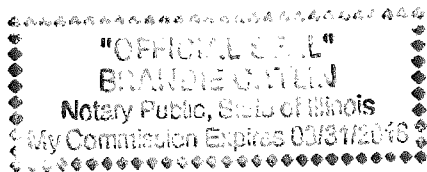 "OFFICIAL SEAL"
BRANDIE
Notary Public, State of Illinois
My Commission Expires 03/31/2016